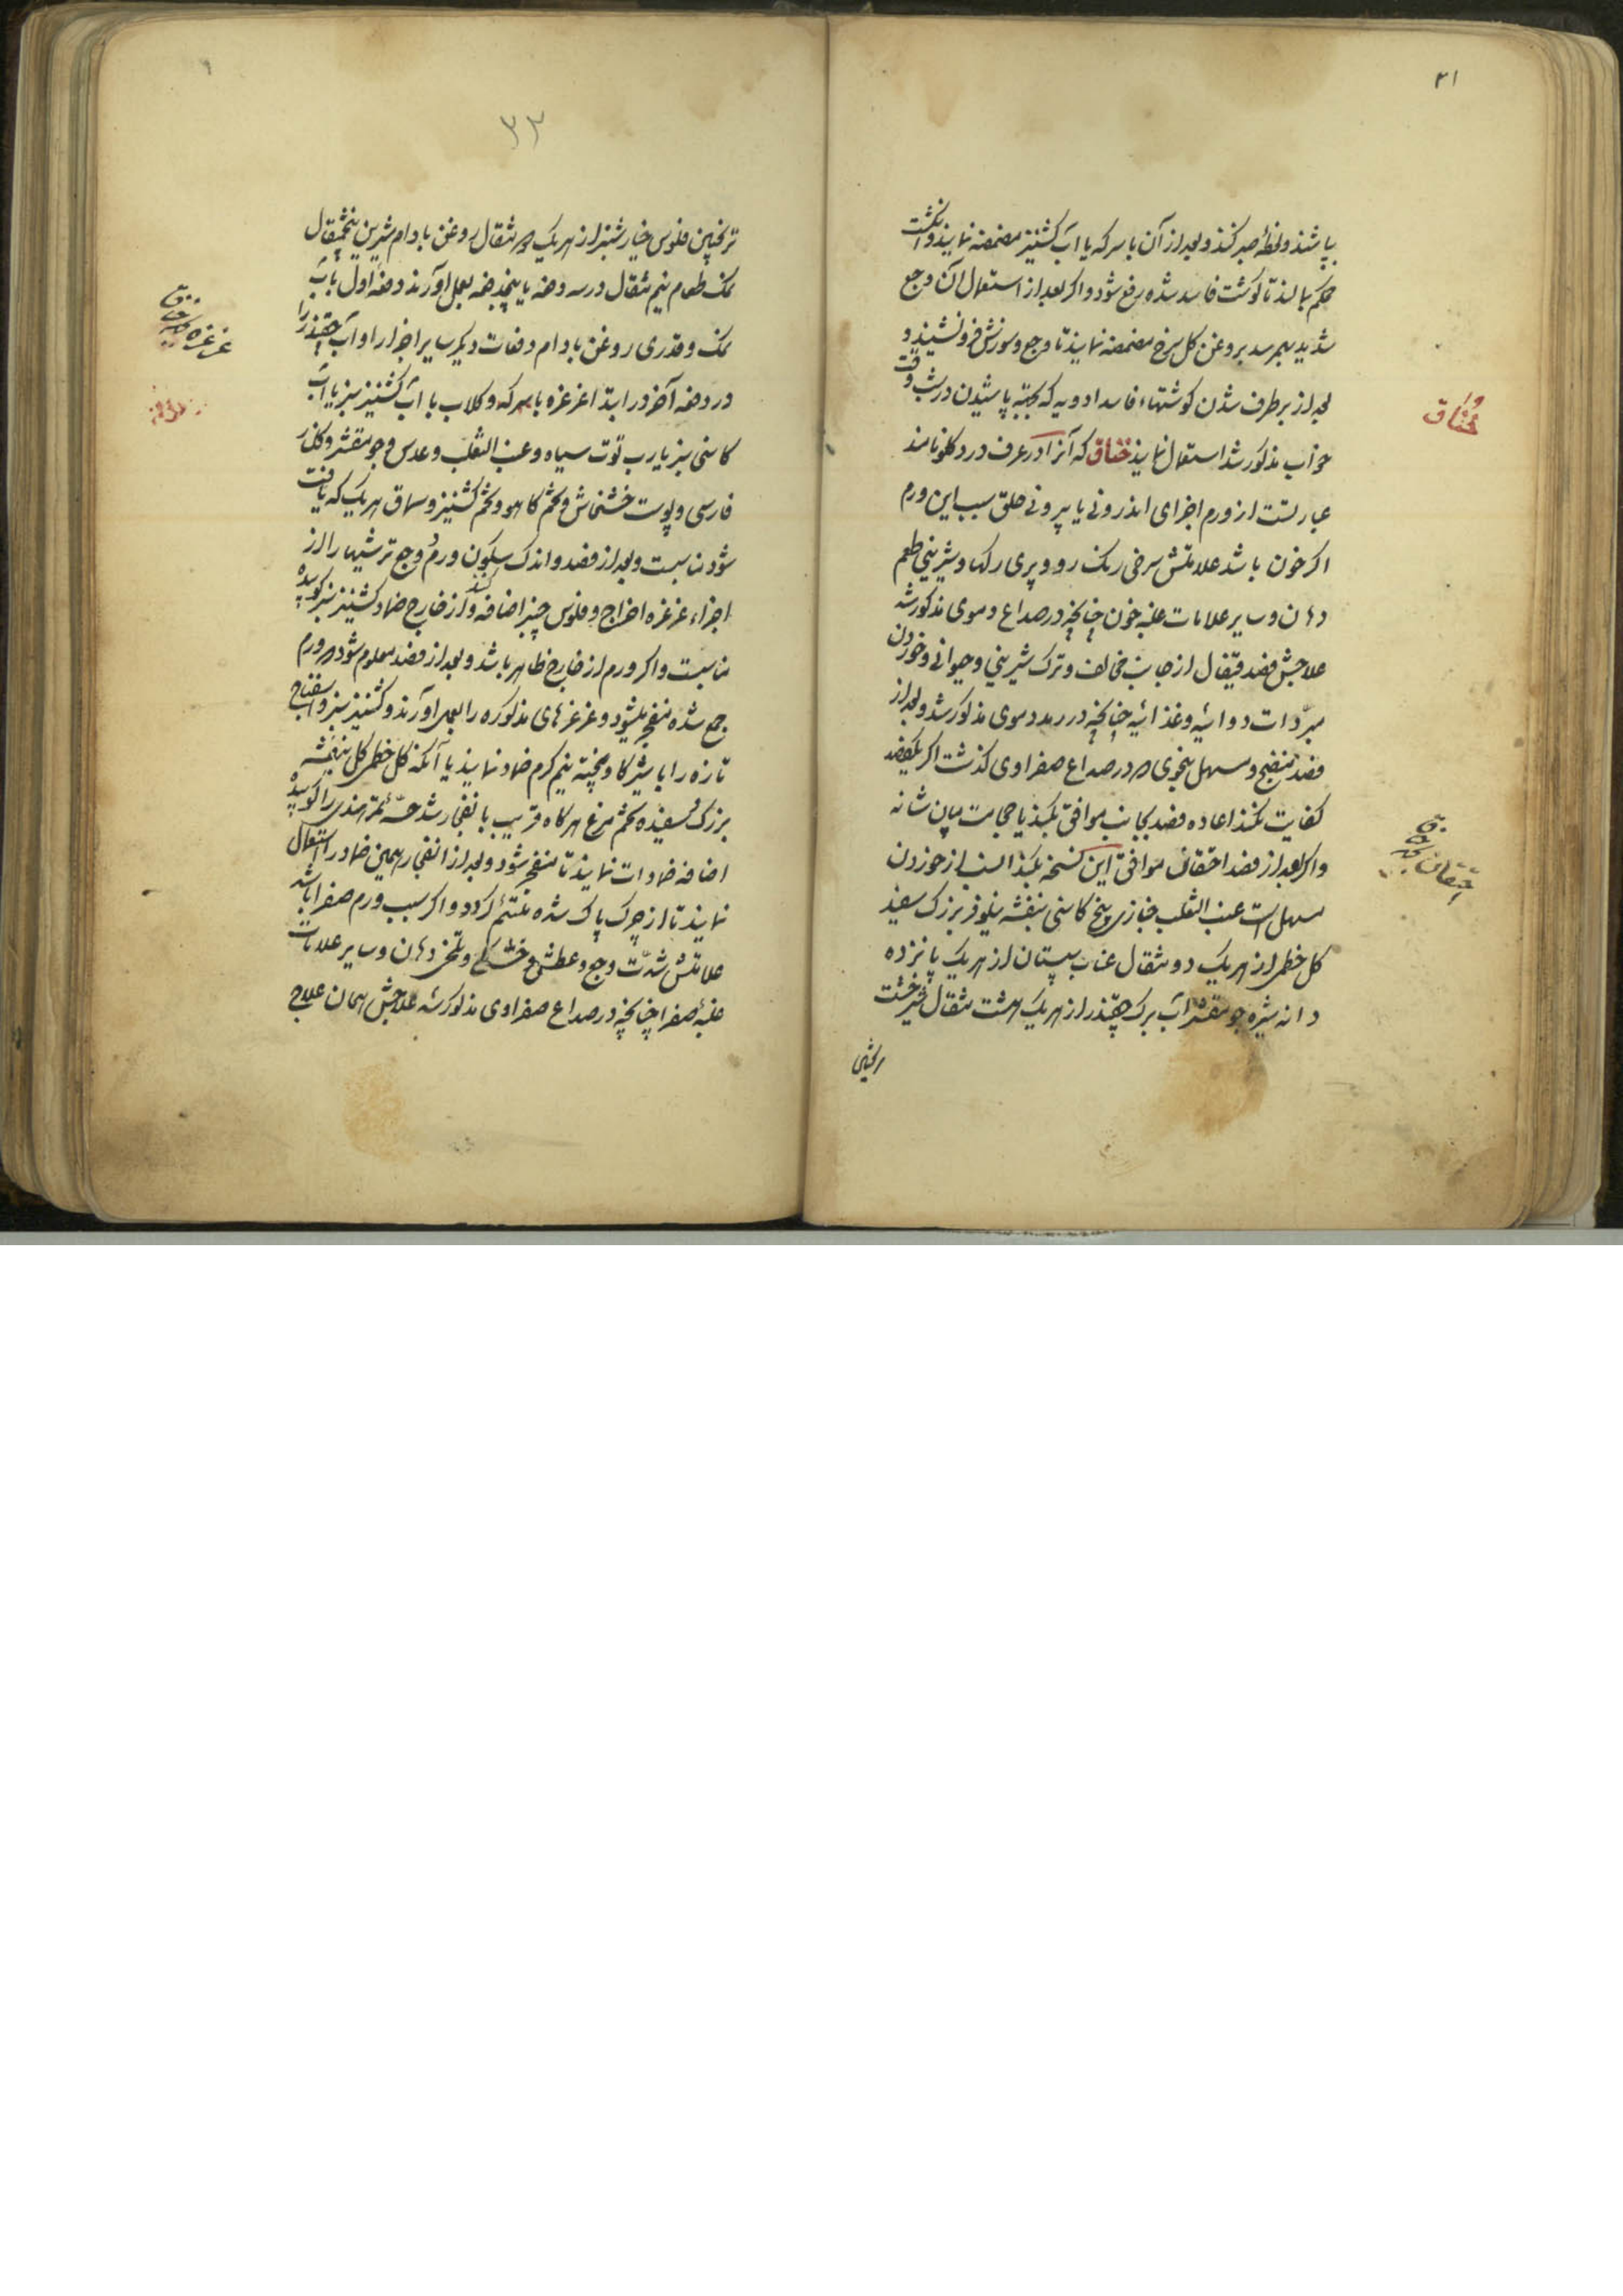 ۳۱
بپاشند و لحظهٔ صبر کنند و بعد از آن با سرکه یا آب کشنیز مضمضه نمایند و انکشت
محکم بمالند تا کوشت فاسد شده رفع شود و اکر بعد از استعمال آن وجع
شدید بهم رسد بروغن کل سرخ مضمضه نمایند تا وجع و سوزش فرو نشیند و
بعد از برطرف شدن کوشتهاء فاسد ادویه که بجهته پاشیدن در شب وقت
خواب مذکور شد استعمال نمایند خناق که آنرا در عرف درد کلو نامند
عبارتست از ورم اجزای اندرونی یا بیرونی حلق سبب این ورم
اکر خون باشد علامتش سرخی رنک رو و پری رکها و شیرینی طعم
دهان و سایر علامات غلبه خون چنانچه در صداع دموی مذکور شد
علاجش فصد قیفال از جانب مخالف و ترک شیرینی و حیوانی و خوردن
مبرّدات دوائیه و غذائیه چنانچه در رمد دموی مذکور شد و بعد از
فصد منضج و مسهل بنحوی که در صداع صفراوی کذشت اکر یک فصد
کفایت نکند اعاده فصد بجانب موافق بکند یا حجامت میان شانه
و اکر بعد از فصد احتقان موافق این نسخه بکند انسب از خوردن
مسهل است عنب الثعلب خبازی بیخ کاسنی بنفشه نیلوفر بزرک سفید
کل خطمی از هر یک دو مثقال عناب سپستان از هر یک پانزده
دانه شیره جو مقشر آب برک چقندر از هر یک هشت مثقال شیرخشت
خناق
احتقان بجهة خناق
۳۳
ترنجبین فلوس خیارشنبر از هر یک ده مثقال روغن بادام شیرین پنجمثقال
نمک طعام نیم مثقال در سه دفعه یا پنجدفعه بعمل آورند دفعه اول با آب
نمک و قدری روغن بادام دفعات دیکر سایر اجزا را و آب چقندر را
در دفعه آخر در ابتدا غرغره با سرکه و کلاب با آب کشنیز سبز یا آب
کاسنی سبز یا رب توت سیاه و عنب الثعلب و عدس و جو مقشر و کلنار
فارسی و پوست خشخاش و تخم کاهو و تخم کشنیز و سماق هر یک که یافت
شود مناسبست و بعد از فصد و اندک سکون ورم و وجع ترشیها را از
اجزاء غرغره اخراج و فلوس چنبر اضافه کنند و از خارج ضماد کشنیز سبز کوبیده
مناسبست و اکر ورم از خارج ظاهر باشد و بعد از فصد معلوم شود که ورم
جمع شده منفجر میشود و غرغرهای مذکوره را بعمل آورند و کشنیز سبز و اسفناج
تازه را با شیر کاو پخته نیم کرم ضماد نمایند یا آنکه کل خطمی کل بنفشه
بزرک و سفیده تخم مرغ هرکاه قریب بانفجار شد حبهٔ تمر هندی را کوبیده
اضافه ضمادات نمایند تا منفجر شود و بعد از انفجار همین ضماد را استعمال
نمایند تا از چرک پاک شده ملتئم کردد و اکر سبب ورم صفرا باشد
علامتش شدّت وجع و عطش و خشکی و تلخی دهان و سایر علامات
غلبهٔ صفرا چنانچه در صداع صفراوی مذکور شد علاجش همان علاج
غرغره بجهة خناق